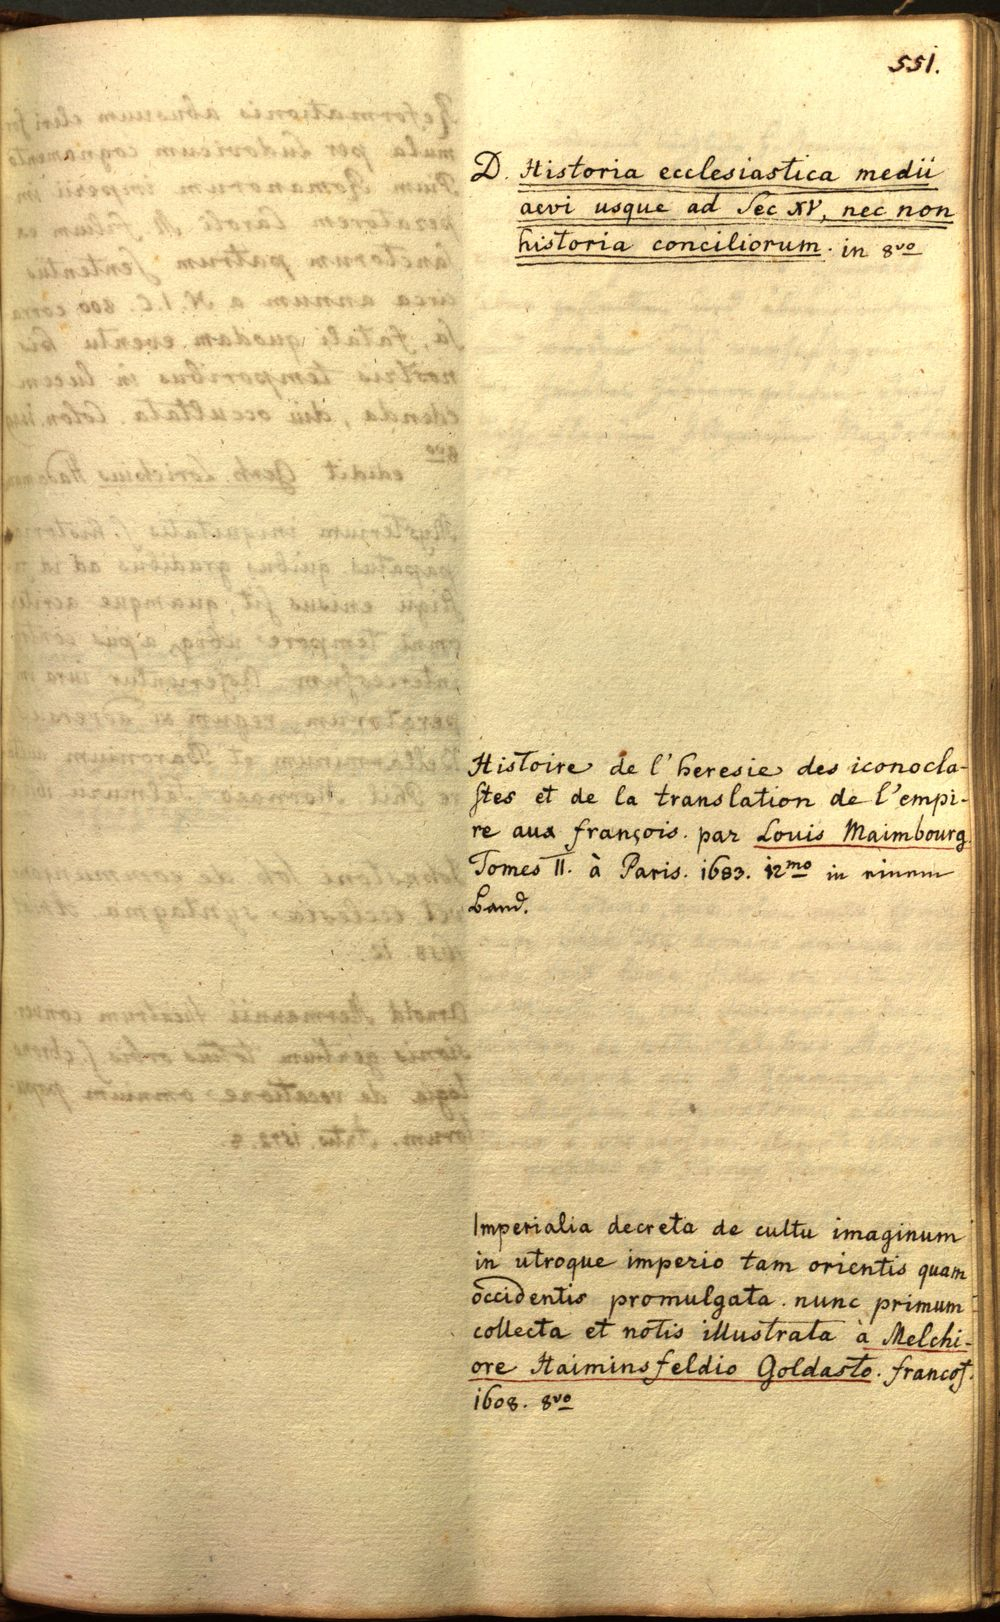 551.
D. Historia ecclesiastica medii
aevi usque ad Sec XV, nec non
historia conciliorum. in 8vo
Histoire de l'heresie des iconocla-
stes et de la translation de l'empi-
re aux françois. par Louis Maimbourg
Tomes II. à Paris. 1683. 12mo in einem
Band.
Imperialia decreta de cultu imaginum
in utroque imperio tam orientis quam
occidentis promulgata. nunc primum
collecta et notis illustrata à Melchi-
ore Haiminsfeldio Goldasto. francof.
1608. 8vo